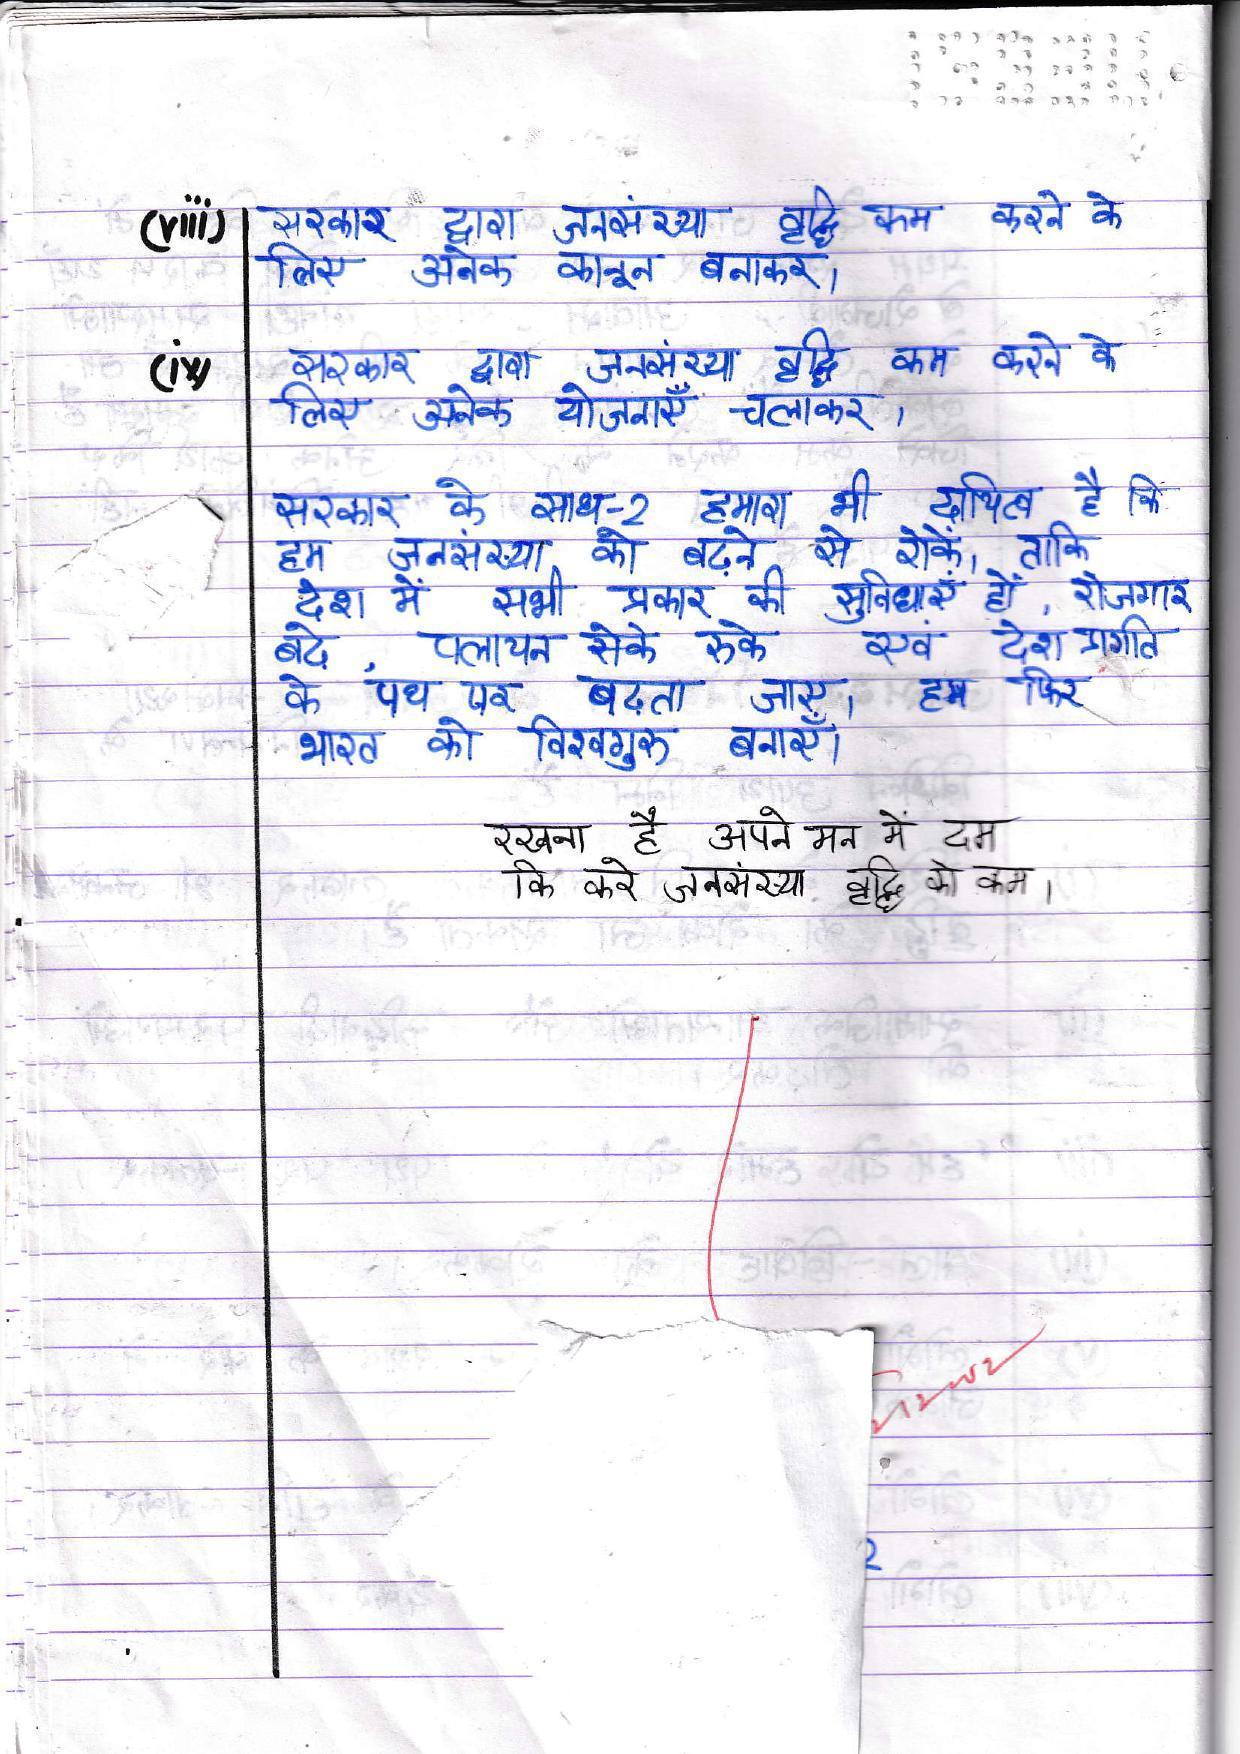 (viii) सरकार द्वारा जनसंख्या वृद्धि कम करने के
लिए अनेक कानून बनाकर।
(ix) सरकार द्वारा जनसंख्या वृद्धि कम करने के
लिए अनेक योजनाएँ चलाकर।
सरकार के साथ-2 हमारा भी दायित्व है कि
हम जनसंख्या को बढ़ने से रोकें, ताकि
देश में सभी प्रकार की सुविधाएँ हों, रोजगार
बढे, पलायन रुके एवं देश प्रगति
के पथ पर बढ़ता जाए। हम फिर
भारत को विश्वगुरू बनाएँ।
रखना है अपने मन में दम
कि करे जनसंख्या वृद्धि को कम।
2